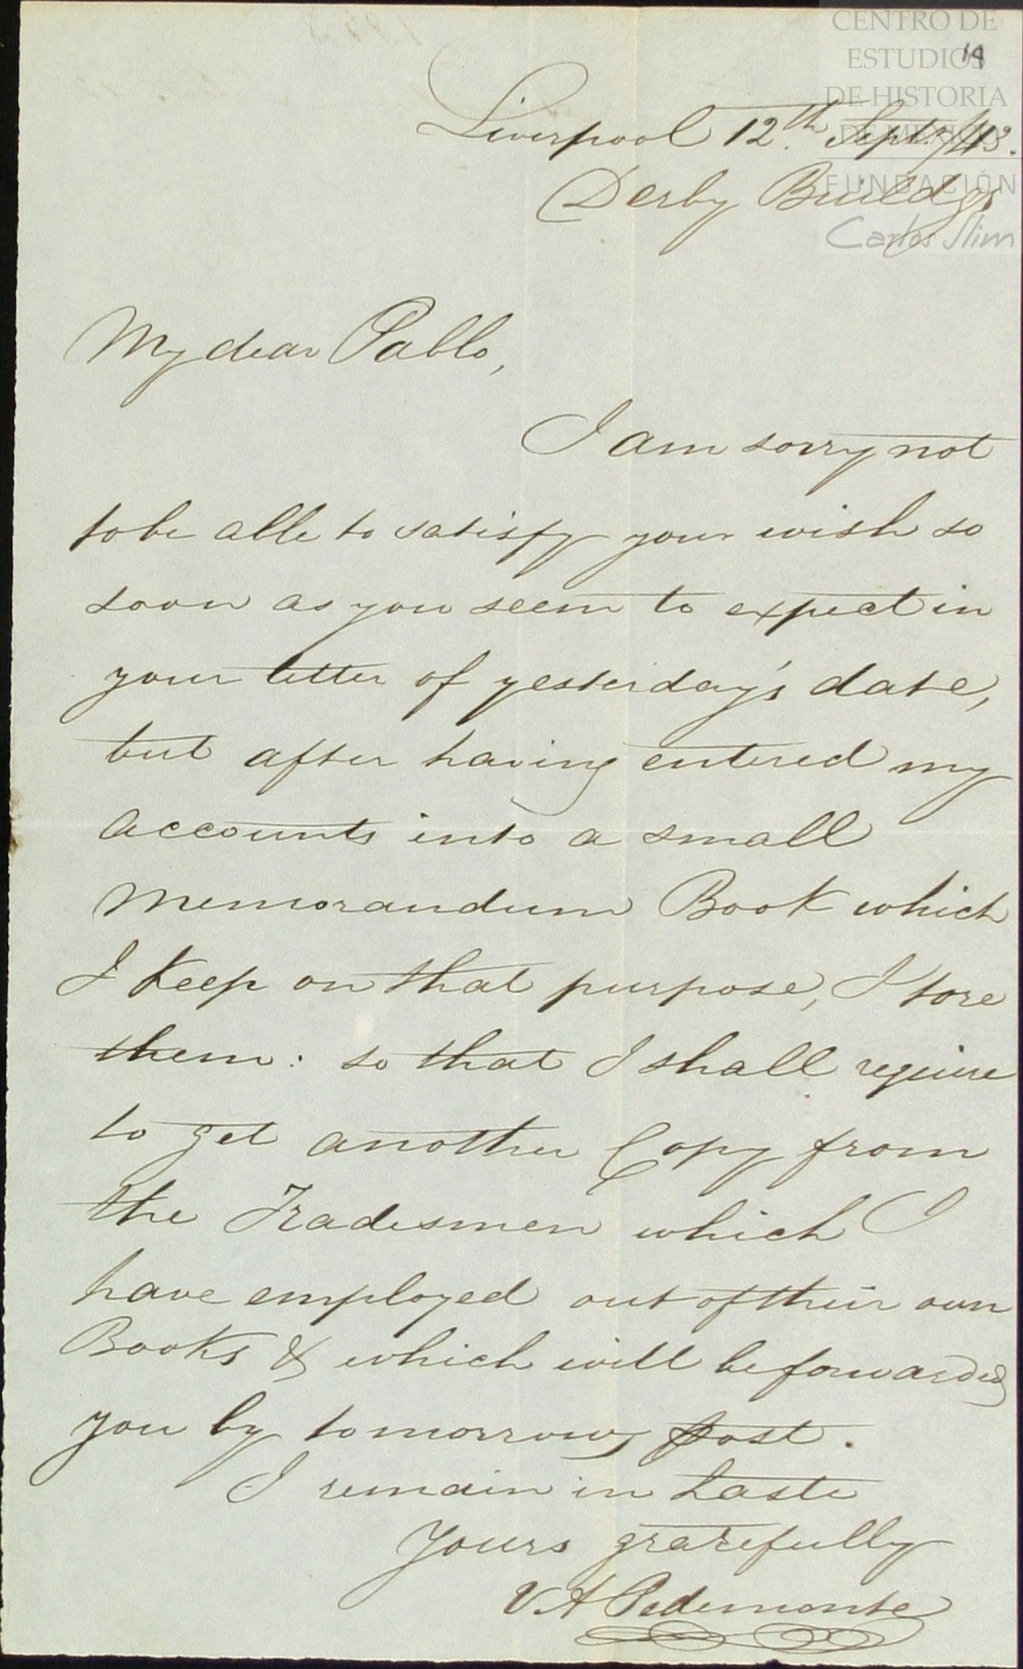 CENTRO DE
ESTUDIOS
DE HISTORIA
DE MÉXICO
FUNDACIÓN
Carlos Slim
19
Liverpool 12th. Sept. /43.
Derby Buildgs
My dear Pablo,
I am sorry not
to be able to satisfy your wish so
soon as you seem to expect in
your letter of yesterday's date,
but after having entered my
accounts into a small
Memorandum Book which
I keep on that purpose, I tore
them: so that I shall require
to get another Copy from
the Tradesmen which I
have employed out of their own
Books & which will be forwarded
you by tomorrows post.
I remain in haste
Yours gratefully
V. A Pedemonte